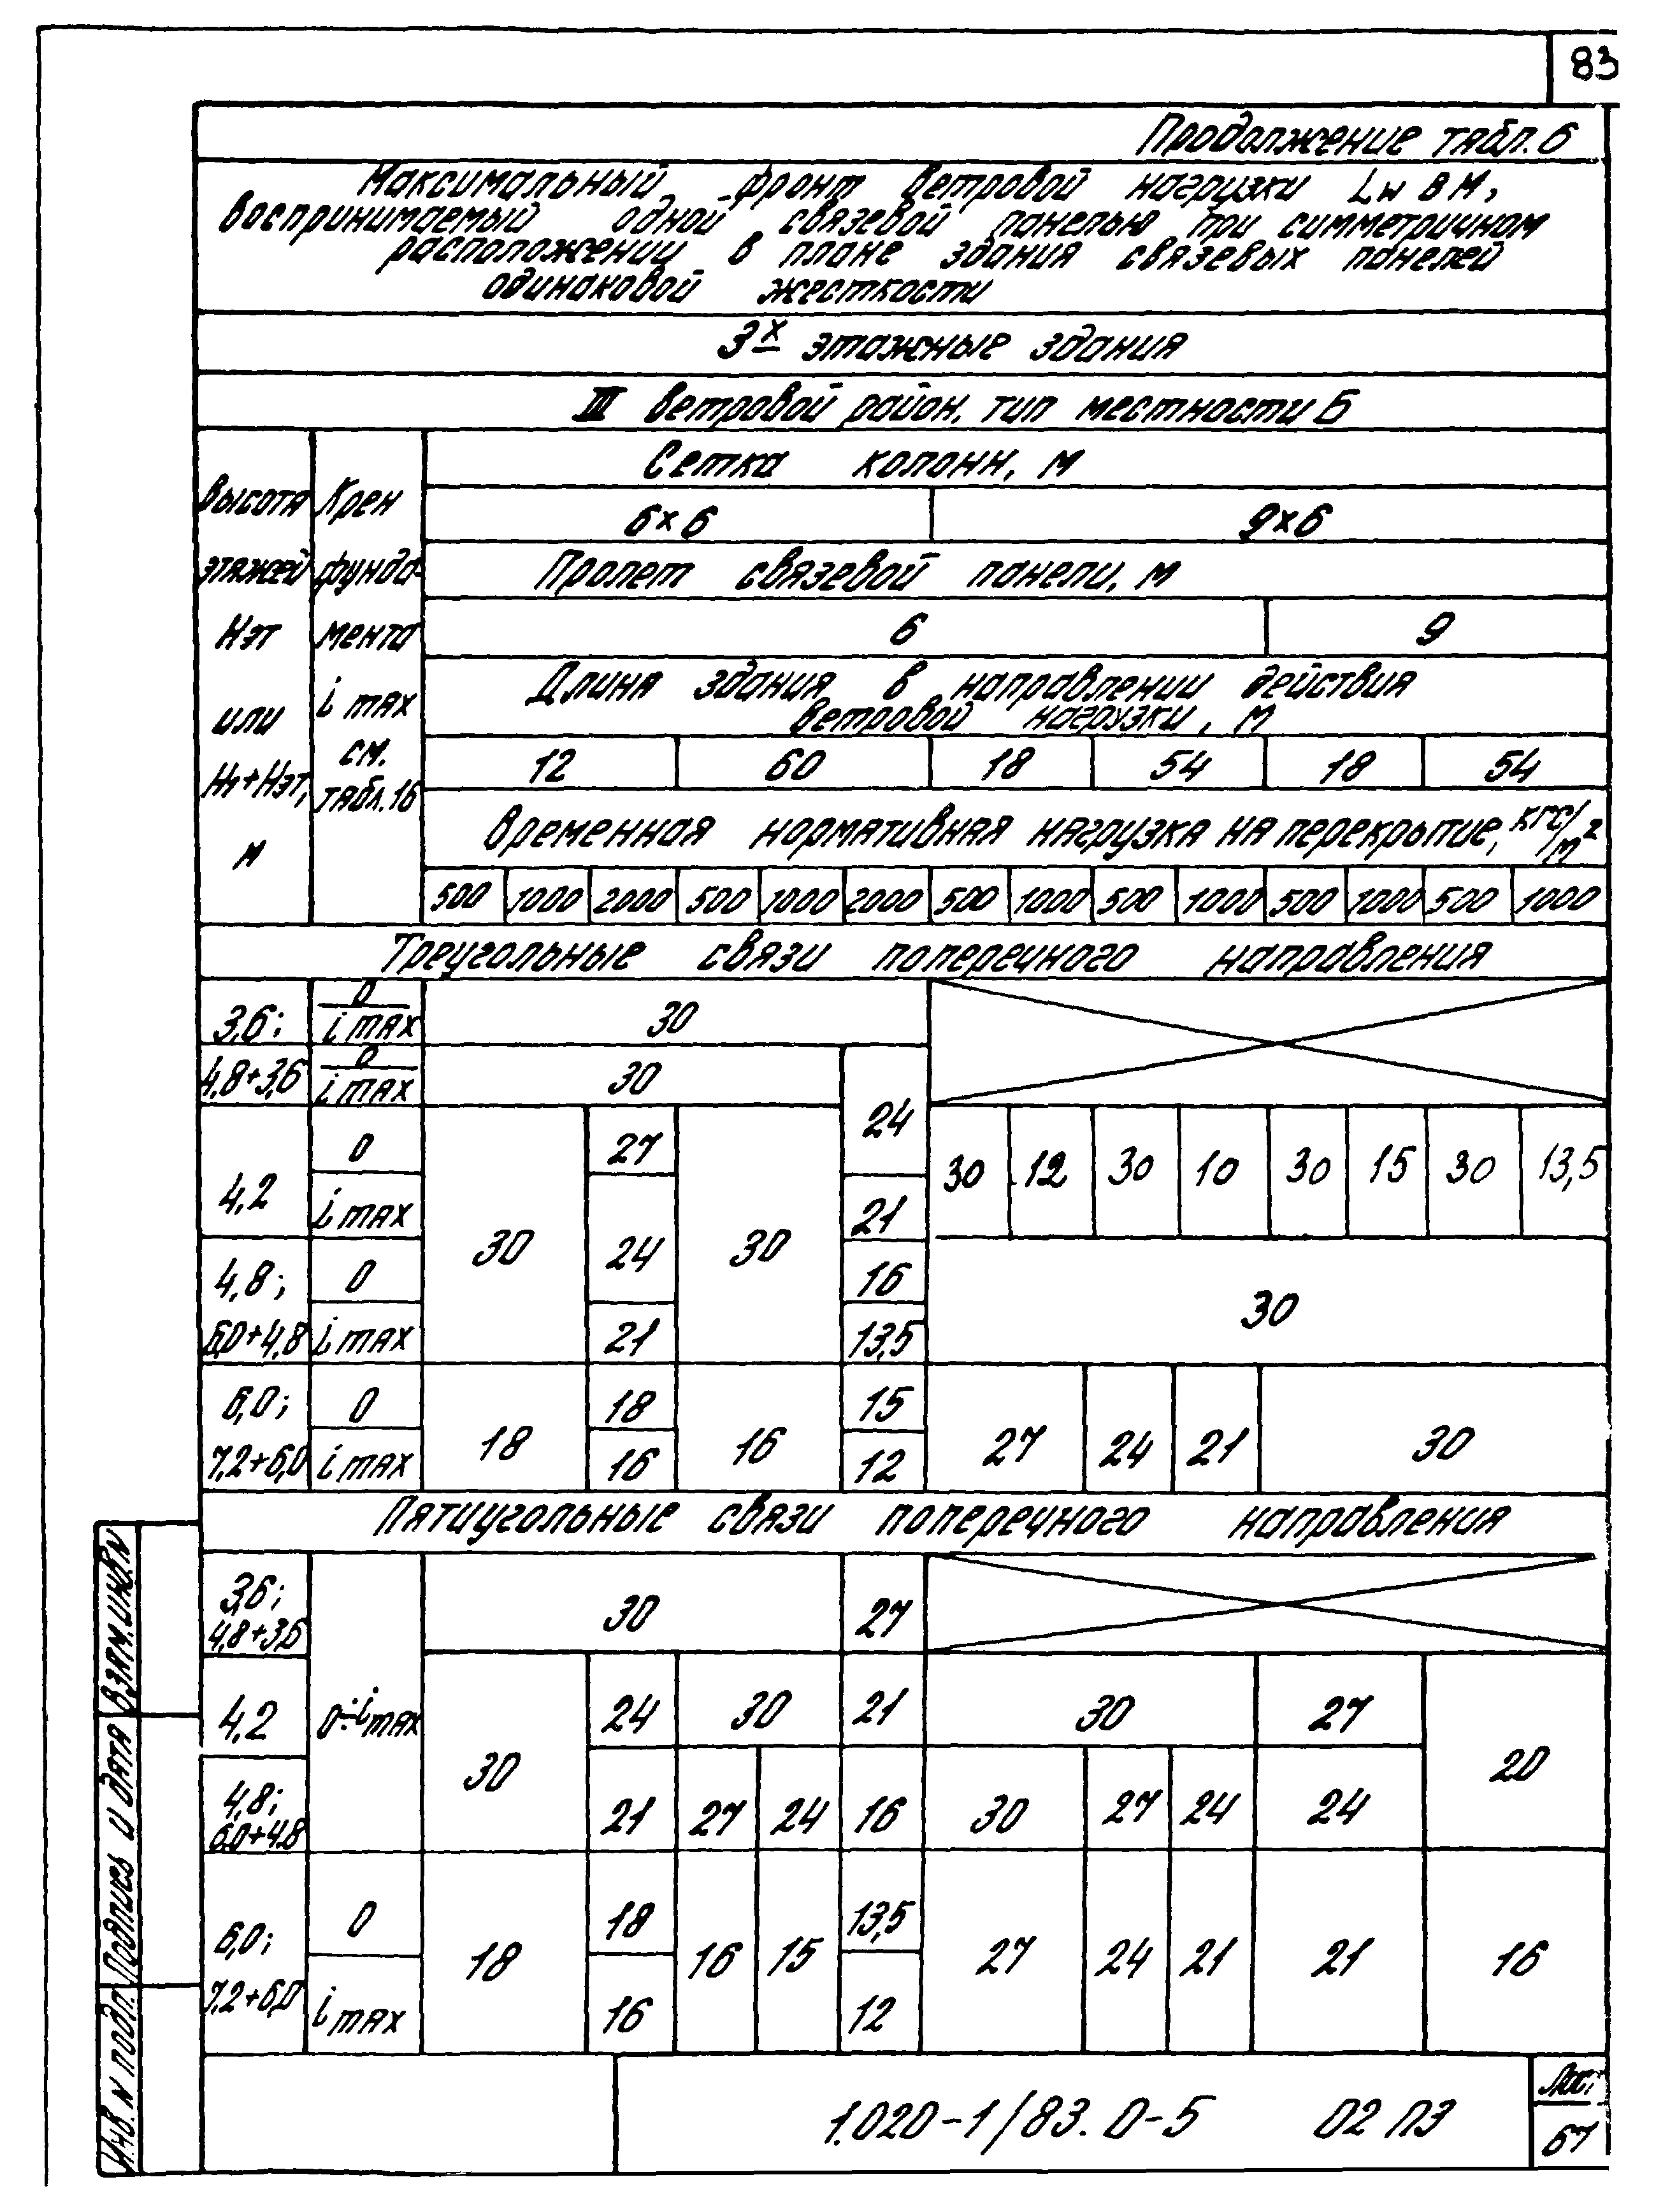 83
Продолжение табл. 6
Максимальный фронт ветровой нагрузки Lw в м,
воспринимаемый одной связевой панелью при симметричном
расположении в плане здания связевых панелей
одинаковой жесткости
3х этажные здания
III ветровой район, тип местности Б
Высота этажей Нэт или Н1+Нэт, м
Крен фунда- мента i max см. табл. 16
Сетка колонн, м
6×6 9×6
Пролет связевой панели, м
6 9
Длина здания в направлении действия
ветровой нагрузки, м
12 60 18 54 18 54
Временная нормативная нагрузка на перекрытие, кгс/м²
500 1000 2000 500 1000 2000 500 1000 500 1000 500 1000 500 1000
Треугольные связи поперечного направления
3,6; 0 / i max 30
4,8+3,6 0 / i max 30 24
4,2 0 27 30 12 30 10 30 15 30 13,5
i max 30 24 30 21
4,8; 0 16 30
6,0+4,8 i max 21 13,5
6,0; 0 18 15
18 16 27 24 21 30
7,2+6,0 i max 16 12
Пятиугольные связи поперечного направления
3,6; 4,8+3,6 30 27
4,2 0÷i max 24 30 21 30 27
30 20
4,8; 6,0+4,8 21 27 24 16 30 27 24 24
6,0; 0 18 13,5
18 16 15 27 24 21 21 16
7,2+6,0 i max 16 12
Взам. инв. N
Подпись и дата
Инв. N подл.
1.020-1/83. 0-5 02 ПЗ
Лист
67